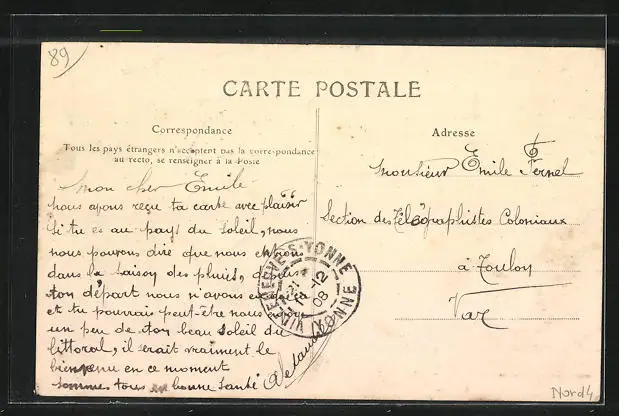 89
CARTE POSTALE
Correspondance
Tous les pays étrangers n'acceptent pas la correspondance
au recto, se renseigner à la Poste
Adresse
Monsieur Emile Pernel
Section des Télégraphistes Coloniaux
à Toulon
Var
Mon cher Emile
nous avons reçu ta carte avec plaisir
si tu es au pays du soleil, nous
nous pouvons dire que nous
dans la saison des pluies, depuis
ton départ nous n'avons
et tu pourrais peut-être nous
un peu de ton beau soleil du
littoral, il serait vraiment le
bienvenu en ce moment
sommes tous en bonne santé
VILLENEUVE-S-YONNE
12
08
YONNE
Nord4